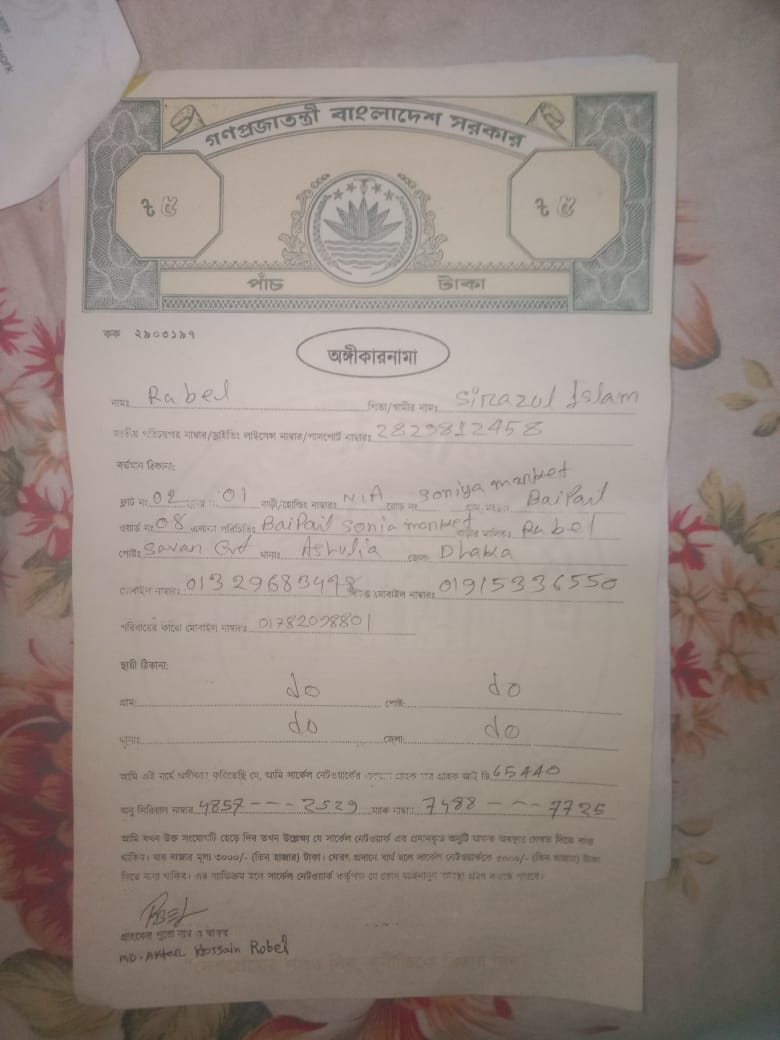 work
গণপ্রজাতন্ত্রী বাংলাদেশ সরকার
৳ ৫ ৳ ৫
পাঁচ টাকা
কক ২৯০৩১৯৭
অঙ্গীকারনামা
নামঃ Rabel পিতা/স্বামীর নামঃ Sirazul Islam
জাতীয় পরিচয়পত্র নাম্বার/ড্রাইভিং লাইসেন্স নাম্বার/পাসপোর্ট নাম্বারঃ 2829812458
বর্তমান ঠিকানা:
ফ্লাট নং 02 01 বাড়ী/হোল্ডিং নাম্বারঃ N/A রোড নং Soniya market BaiPail
ওয়ার্ড নং 08 এলাকা পরিচিতিঃ BaiPail Sonia market বাড়ীর মালিকঃ Rabel
পোষ্টঃ Savar থানাঃ Ashulia জেলাঃ Dhaka
মোবাইল নাম্বারঃ 01329683498 মোবাইল নাম্বারঃ 01915336550
পরিবারের কারো মোবাইল নাম্বারঃ 01782098801
স্থায়ী ঠিকানা:
গ্রাম: do পোষ্ট: do
থানা: do জেলা: do
আমি এই মর্মে অঙ্গীকার করিতেছি যে, আমি সার্কেল নেটওয়ার্কের গ্রাহক আই ডি 65440
অনু সিরিয়াল নাম্বার 4857 --- 2529 ম্যাক নাম্বার 7488 --- 7725
আমি যখন উক্ত সংযোগটি ছেড়ে দিব তখন উল্লেখ্য যে সার্কেল নেটওয়ার্ক এর প্রদানকৃত অনুটি অক্ষত অবস্থায় ফেরত দিতে বাধ্য
থাকিব। যার বাজার মূল্য ৩০০০/- (তিন হাজার) টাকা। ফেরৎ প্রদানে ব্যর্থ হলে সার্কেল নেটওয়ার্ককে ৩০০০/- (তিন হাজার) টাকা
দিতে বাধ্য থাকিব। এর ব্যতিক্রম হলে সার্কেল নেটওয়ার্ক কর্তৃপক্ষ যে কোন আইনানুগ ব্যবস্থা গ্রহন করতে পারবে।
গ্রাহকের পুরো নাম ও স্বাক্ষর
MD-AKter Hossain Robel